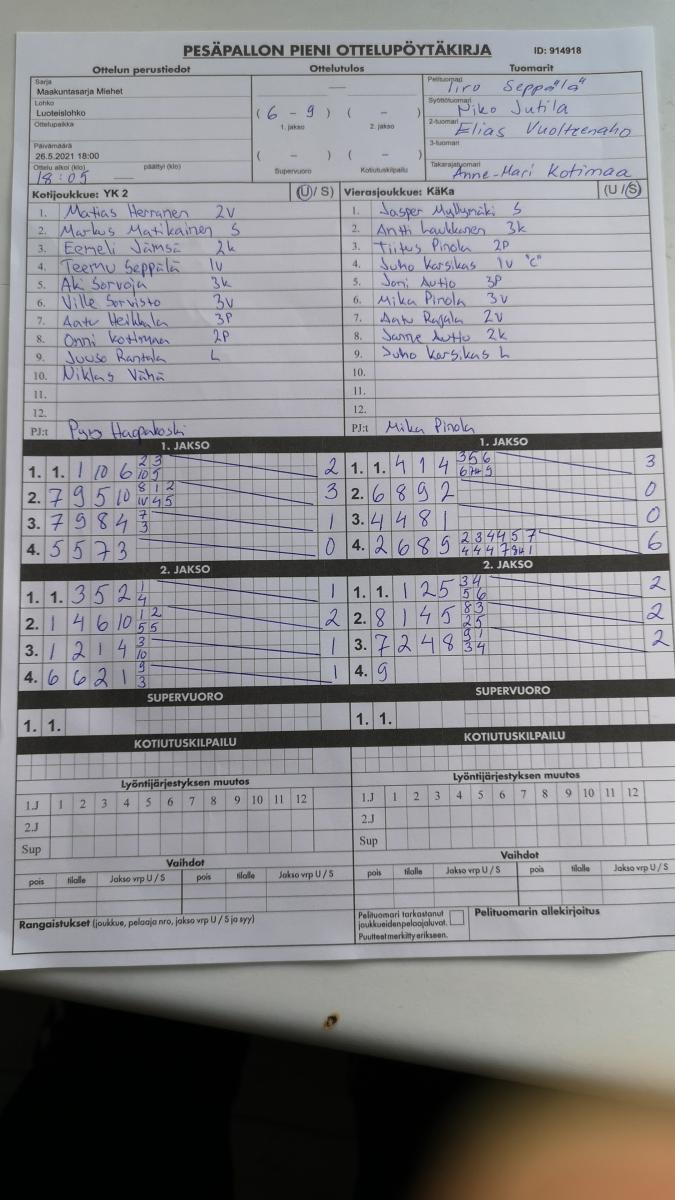 PESÄPALLON PIENI OTTELUPÖYTÄKIRJA ID: 914918
Ottelun perustiedot Ottelutulos Tuomarit
Sarja
Maakuntasarja Miehet
Lohko
Luoteislohko
Ottelupaikka
Päivämäärä
26.5.2021 18:00
Ottelu alkoi (klo) päättyi (klo)
18:05
( 6 - 9 ) ( - )
1. jakso 2. jakso
( - ) ( - )
Supervuoro Kotiutuskilpailu
Pelituomari
Syöttötuomari
Niko Jutila
2-tuomari
Elias Vuolteenaho
3-tuomari
Takarajatuomari
Anne-Mari Kotimaa
Kotijoukkue: YK 2 (U/ S)
1. Matias Herranen 2v
2. Markus Matikainen S
3. Eemeli Jämsä 2k
4. Teemu Seppälä 1v
5. Aki Sorvoja 3k
6. Ville Sorvisto 3v
7. Aatu Heikkala 3P
8. Onni Kotimaa 2P
9. Juuso Rantala L
10. Niklas Vähä
11.
12.
PJ:t Haapakoski
Vierasjoukkue: KäKa (U / S)
1. Jasper Myllymäki S
2. Antti Laukkanen 3k
3. Tiitus Pinola 2P
4. Juho Karsikas 1v "C"
5. Joni Autio 3P
6. Mika Pinola 3v
7. Aatu Rajala 2v
8. Janne Autio 2k
9. Juho Karsikas L
10.
11.
12.
PJ:t Mika Pinola
1. JAKSO
1. 1. 1 10 6 2 3 10 5 2
2. 7 9 5 10 8 1 2 10 4 5 3
3. 7 9 8 4 7 3 1
4. 5 5 7 3 0
1. JAKSO
1. 1. 4 1 4 3 5 6 3
2. 6 8 9 2 0
3. 4 4 8 1 0
4. 2 6 8 9 2 3 4 4 5 7 6
2. JAKSO
1. 1. 3 5 2 1 4 1
2. 1 4 6 10 1 2 5 5 2
3. 1 2 1 4 3 10 1
4. 6 6 2 1 9 3 1
2. JAKSO
1. 1. 1 2 5 3 4 5 6 2
2. 8 1 4 5 8 3 2 5 2
3. 7 2 4 8 9 1 3 4 2
4. 9
SUPERVUORO
1. 1.
SUPERVUORO
1. 1.
KOTIUTUSKILPAILU
KOTIUTUSKILPAILU
Lyöntijärjestyksen muutos
1.J 1 2 3 4 5 6 7 8 9 10 11 12
2.J
Sup
Lyöntijärjestyksen muutos
1.J 1 2 3 4 5 6 7 8 9 10 11 12
2.J
Sup
Vaihdot
pois tilalle Jakso vrp U / S pois tilalle Jakso vrp U / S
Vaihdot
pois tilalle Jakso vrp U / S pois tilalle Jakso vrp U / S
Rangaistukset (joukkue, pelaaja nro, jakso vrp U / S ja syy)
Pelituomari tarkastanut
joukkueiden pelaajaluvat.
Puutteet merkitty erikseen.
Pelituomarin allekirjoitus